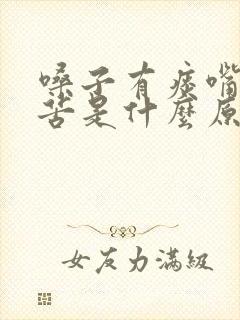 嗓子有痰嘴
苦是什麼原
女友力滿級